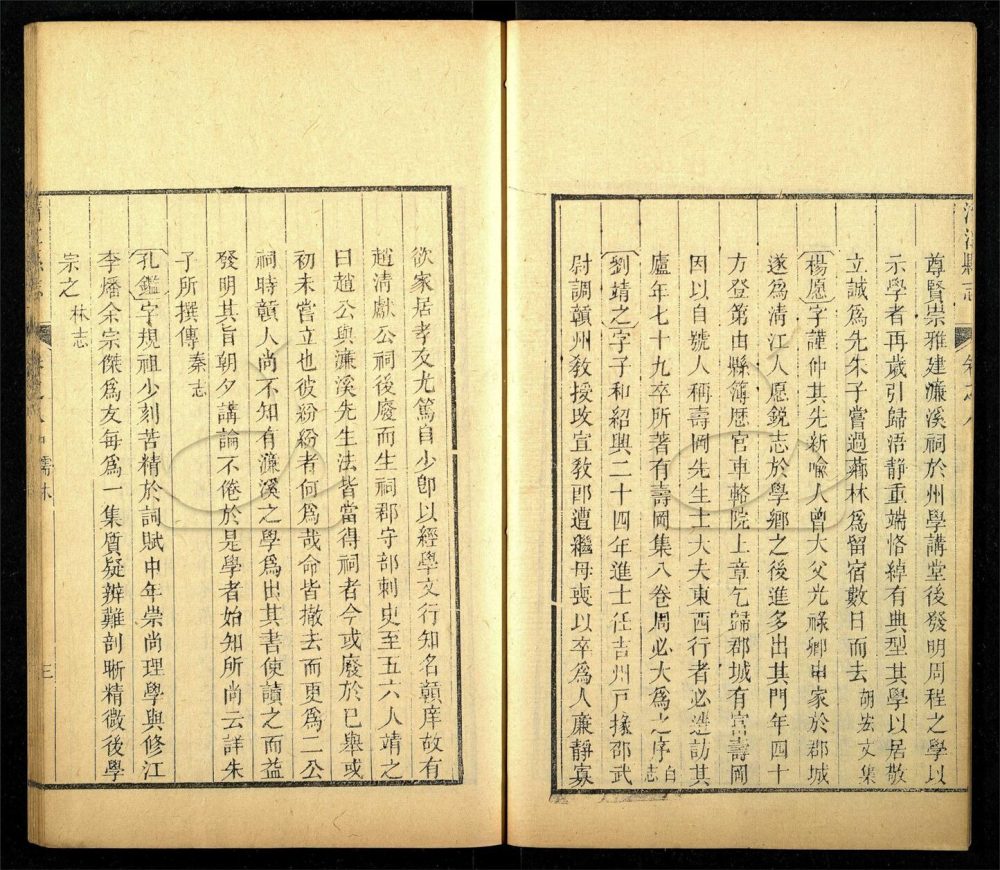 清江縣志 卷之八
尊賢崇雅建濂溪祠於州學講堂後發明周程之學以
示學者再歲引歸浯靜重端恪綽有典型其學以居敬
立誠爲先朱子嘗過薌林爲留宿數日而去 胡宏文集
楊愿字謹仲其先新喻人曾大父光祿卿申家於郡城
遂爲清江人愿銳志於學鄉之後進多出其門年四十
方登第由縣簿歷官車輅院上章乞歸郡城有富壽岡
因以自號人稱壽岡先生士大夫東西行者必造訪其
廬年七十九卒所著有壽岡集八卷周必大爲之序 白志
劉靖之字子和紹興二十四年進士任吉州戸掾邵武
尉調贛州教授改宣教郎遭繼母喪以卒爲人廉靜寡
欲家居孝友尤篤自少卽以經學文行知名贛庠故有
趙清獻公祠後廢而生祠郡守部刺史至五六人靖之
曰趙公與濂溪先生法皆當得祠者今或廢於已舉或
初未嘗立也彼紛紛者何爲哉命皆撤去而更爲二公
祠時贛人尚不知有濂溪之學爲出其書使讀之而益
發明其旨朝夕講論不倦於是學者始知所尚云詳朱
子所撰傳 秦志
孔鑑字規祖少刻苦精於詞賦中年崇尚理學與修江
李燔余宗傑爲友每爲一集質疑辨難剖晰精微後學
宗之 林志
儒林 三